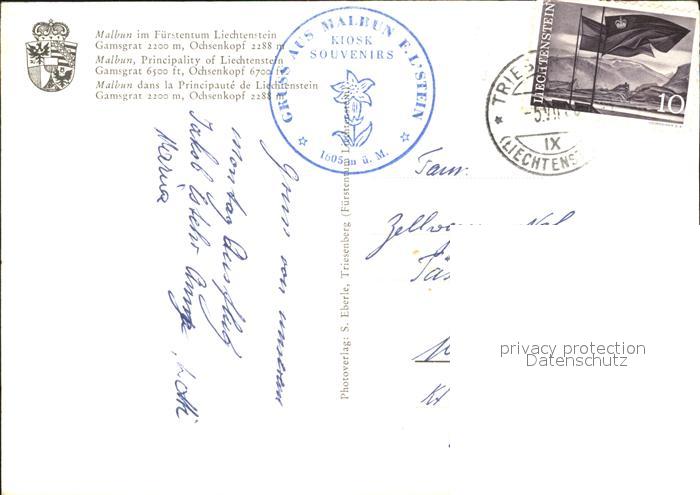 Malbun im Fürstentum Liechtenstein
Gamsgrat 2200 m, Ochsenkopf 2288 m
Malbun, Principality of Liechtenstein
Gamsgrat 6500 ft, Ochsenkopf 6700 ft
Malbun dans la Principauté de Liechtenstein
Gamsgrat 2200 m, Ochsenkopf 2288 m
GRUSS AUS MALBUN F. L'STEIN
KIOSK
SOUVENIRS
1605 m ü. M.
LIECHTENSTEIN
10
TRIES
-5.VII
IX
(LIECHTENS
Gruss von unserem
Montag Ausflug
Jakob
Maria
Photoverlag: S. Eberle, Triesenberg (Fürstentum Liechtenstein)
Fam.
Zellwe
privacy protection
Datenschutz